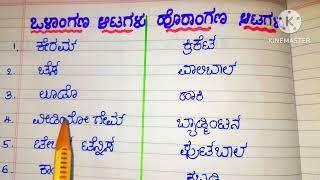 ಒಳಾಂಗಣ ಆಟಗಳು ಹೊರಾಂಗಣ ಆಟಗಳು
KINEMASTER
1. ಕೇರಮ್ ಕ್ರಿಕೆಟ
2. ಚೆಸ ವಾಲಿಬಾಲ್
3. ಲೂಡೊ ಹಾಕಿ
4. ವೀಡಿಯೋ ಗೇಮ್ ಬ್ಯಾಡ್ಮಿಂಟನ
5. ಟೇಬಲ ಟೆನ್ನಿಸ ಫುಟಬಾಲ್
6.